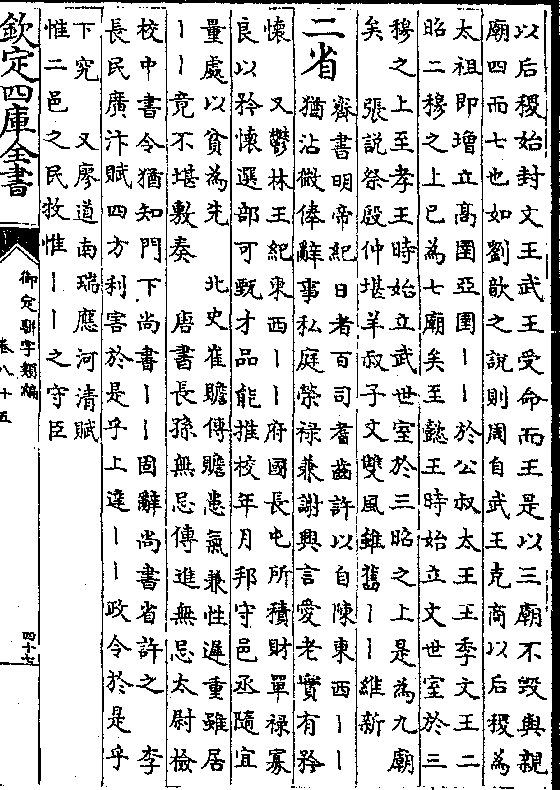 以后稷始封文王武王受命而王是以三廟不毀與親
廟四而七也如劉歆之説則周自武王克商以后稷為
太祖即増立髙圉亞圉丨丨於公叔太王王季文王二
昭二穆之上已為七廟矣至懿王時始立文世室於三
穆之上至孝王時始立武世室於三昭之上是為九廟
矣　張説祭殷仲堪羊叔子文雙風雖舊丨丨維新
二省
齊書明帝紀日者百司耆齒許以自陳東西丨丨
猶沾㣲俸辭事私庭榮禄兼謝興言愛老實有矜
懐　又鬱林王紀東西丨丨府國長屯所積財單禄寡
良以矜懐選部可甄才品能推校年月邦守邑丞隨宜
量處以貧為先　北史崔贍傳贍患氣兼性遲重雖居
丨丨竟不堪敷奏　唐書長孫無忌傳進無忌太尉檢
校中書令猶知門下尚書丨丨固辭尚書省許之　李
長民廣汴賦四方利害於是乎上達丨丨政令於是乎
下究　又廖道南瑞應河清賦
惟二邑之民牧惟丨丨之守臣
欽定四庫全書
御定駢字類編
卷八十五
四十七